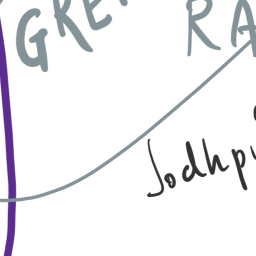 GRE RA
Jodhpu